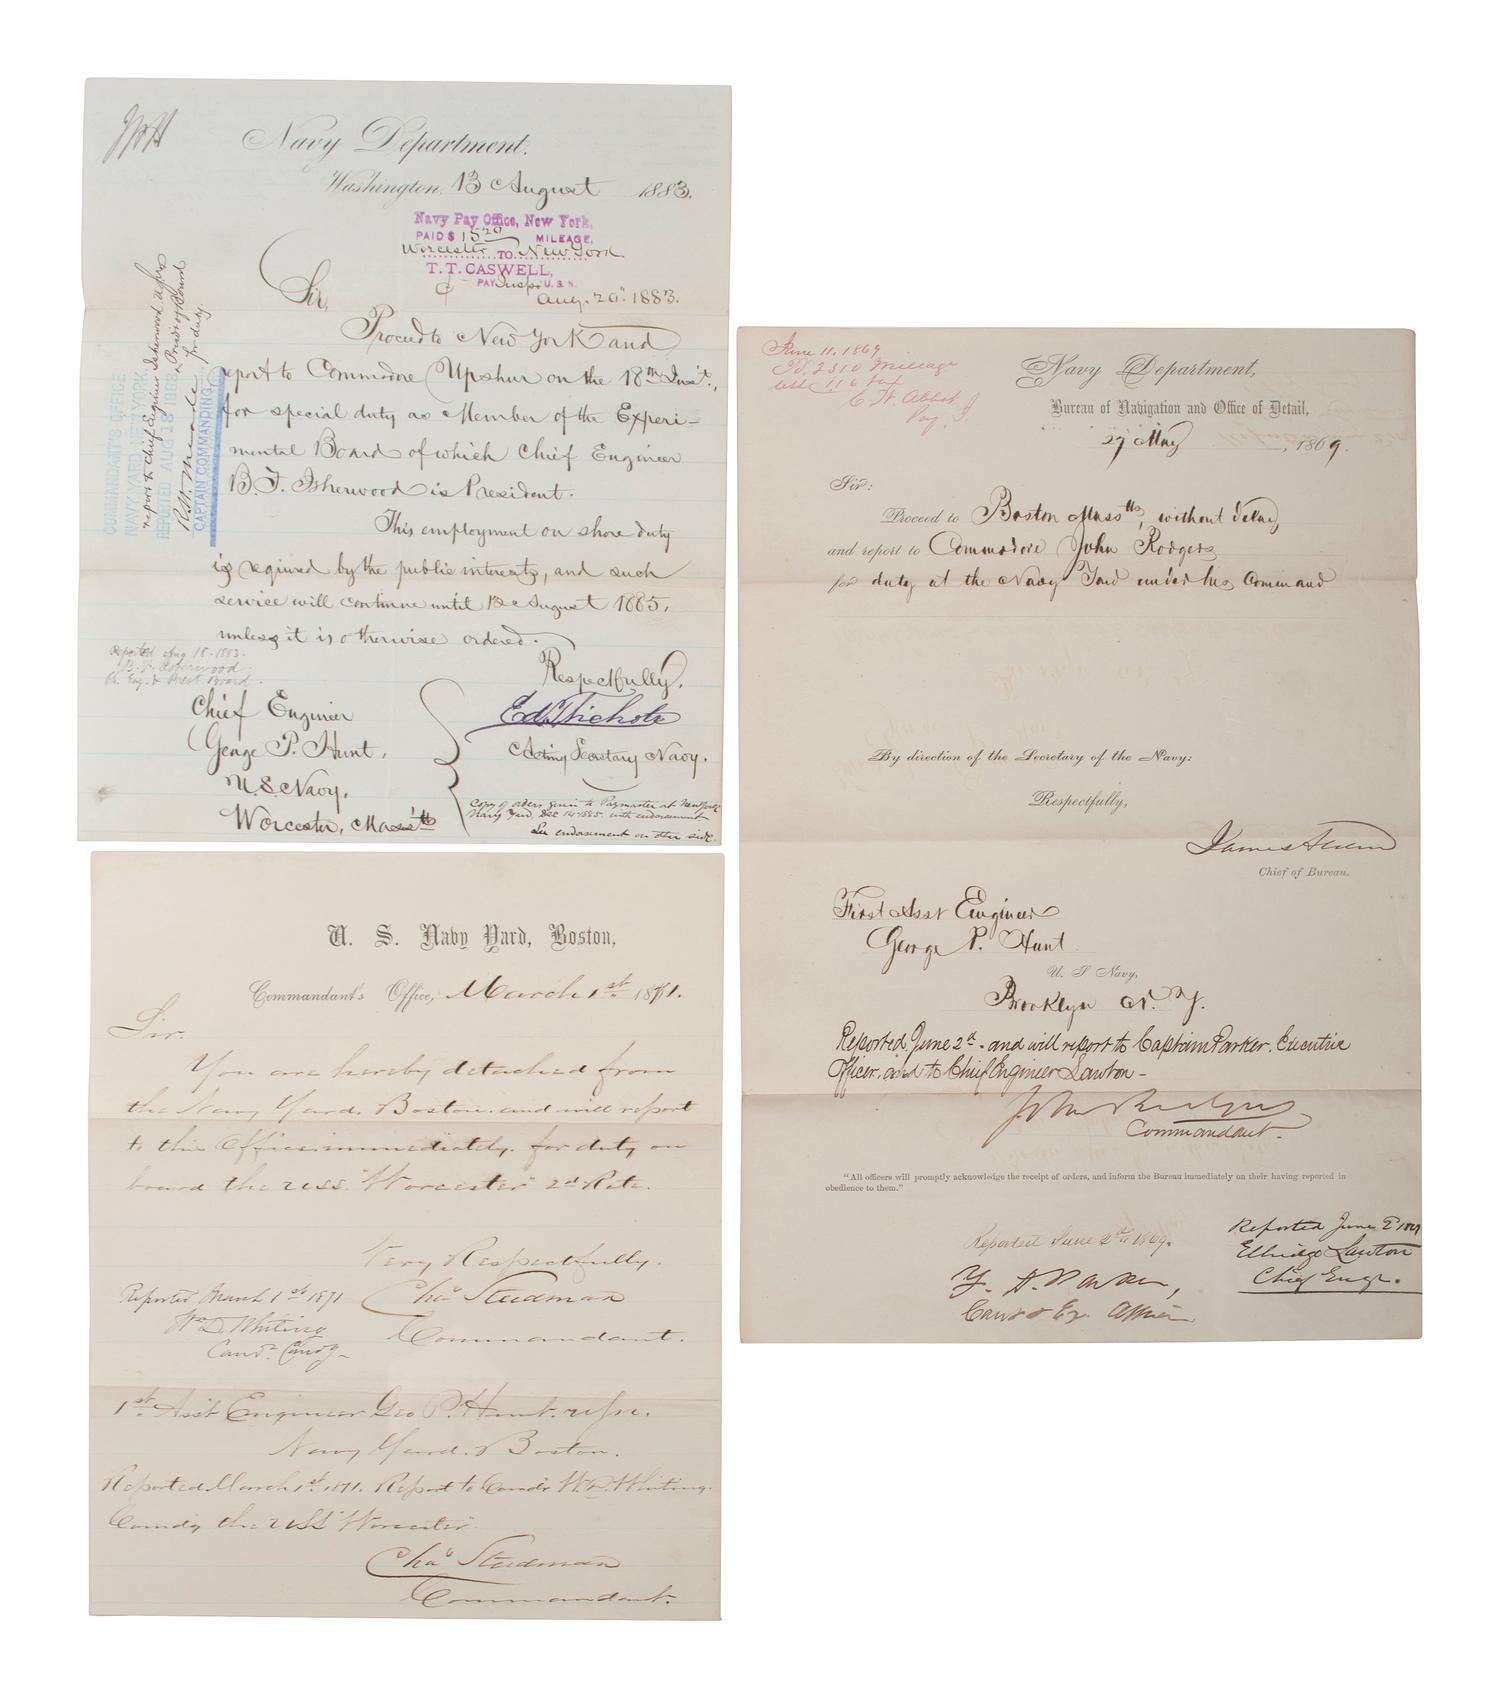 Navy Department.
Washington, 13 August 1883.
Navy Pay Office, New York,
PAID $ 15 20 MILEAGE,
Worcester TO New York
T. T. CASWELL,
PAY Inspr U.S.N.
Aug. 20" 1883.
Sir,
Proceed to New York and
report to Commodore Upshur on the 18th Inst.,
for special duty as Member of the Experi-
mental Board of which Chief Engineer
B. F. Isherwood is President.
This employment on shore duty
is required by the public interests, and such
service will continue until 12 August 1885,
unless it is otherwise ordered.
Respectfully,
Ed. T. Nichols
Acting Secretary Navy.
Chief Engineer
George P. Hunt,
U. S. Navy,
Worcester, Mass
COMMANDANT'S OFFICE
NAVY YARD NEW YORK
report to Chief Engineer Isherwood
REPORTED AUG 18 1883
Presdt of Board
for duty.
R. W. Meade
CAPTAIN COMMANDING.
Reported Aug 18-1883.
B. F. Isherwood
Ch. Eng. & Prest Board.
Copy of orders given to Paymaster at New York
Navy Yard, Dec 14-1885. with endorsement
See endorsement on other side.
U. S. Navy Yard, Boston,
Commandant's Office, March 1st 1871.
Sir.
You are hereby detached from
the Navy Yard, Boston. and will report
to this Office immediately. for duty on
board the U.S.S. "Worcester" 2d Rate.
Very Respectfully.
Chas Steedman
Commandant.
Reported March 1st 1871
Wm D. Whiting
Comdr Comdg
1st Asst Engineer Geo P. Hunt. USN.
Navy Yard. Boston.
Reported March 1st 1871. Report to Comdr W. D. Whiting.
Comdg the USS "Worcester"
Chas Steedman
Commandant.
June 11. 1869
Pd. 23 10 Mileage
less 1.16 tax
C. W. Abbot
Navy Department,
Bureau of Navigation and Office of Detail,
27 May, 1869.
Sir:
Proceed to Boston Mass, without delay
and report to Commodore John Rodgers
for duty at the Navy Yard under his Command
By direction of the Secretary of the Navy:
Respectfully,
James Alden
Chief of Bureau.
First Asst Engineer
George P. Hunt
U. S. Navy,
Brooklyn N. Y.
Reported June 2d - and will report to Captain Parker. Executive
Officer, and to Chief Engineer Lawton -
John Rodgers
Commandant.
"All officers will promptly acknowledge the receipt of orders, and inform the Bureau immediately on their having reported in
obedience to them."
Reported June 2nd 1869.
F. A. Parker,
Capt & Ex. Officer
Reported June 2 1869
Elbridge Lawton
Chief Engr.